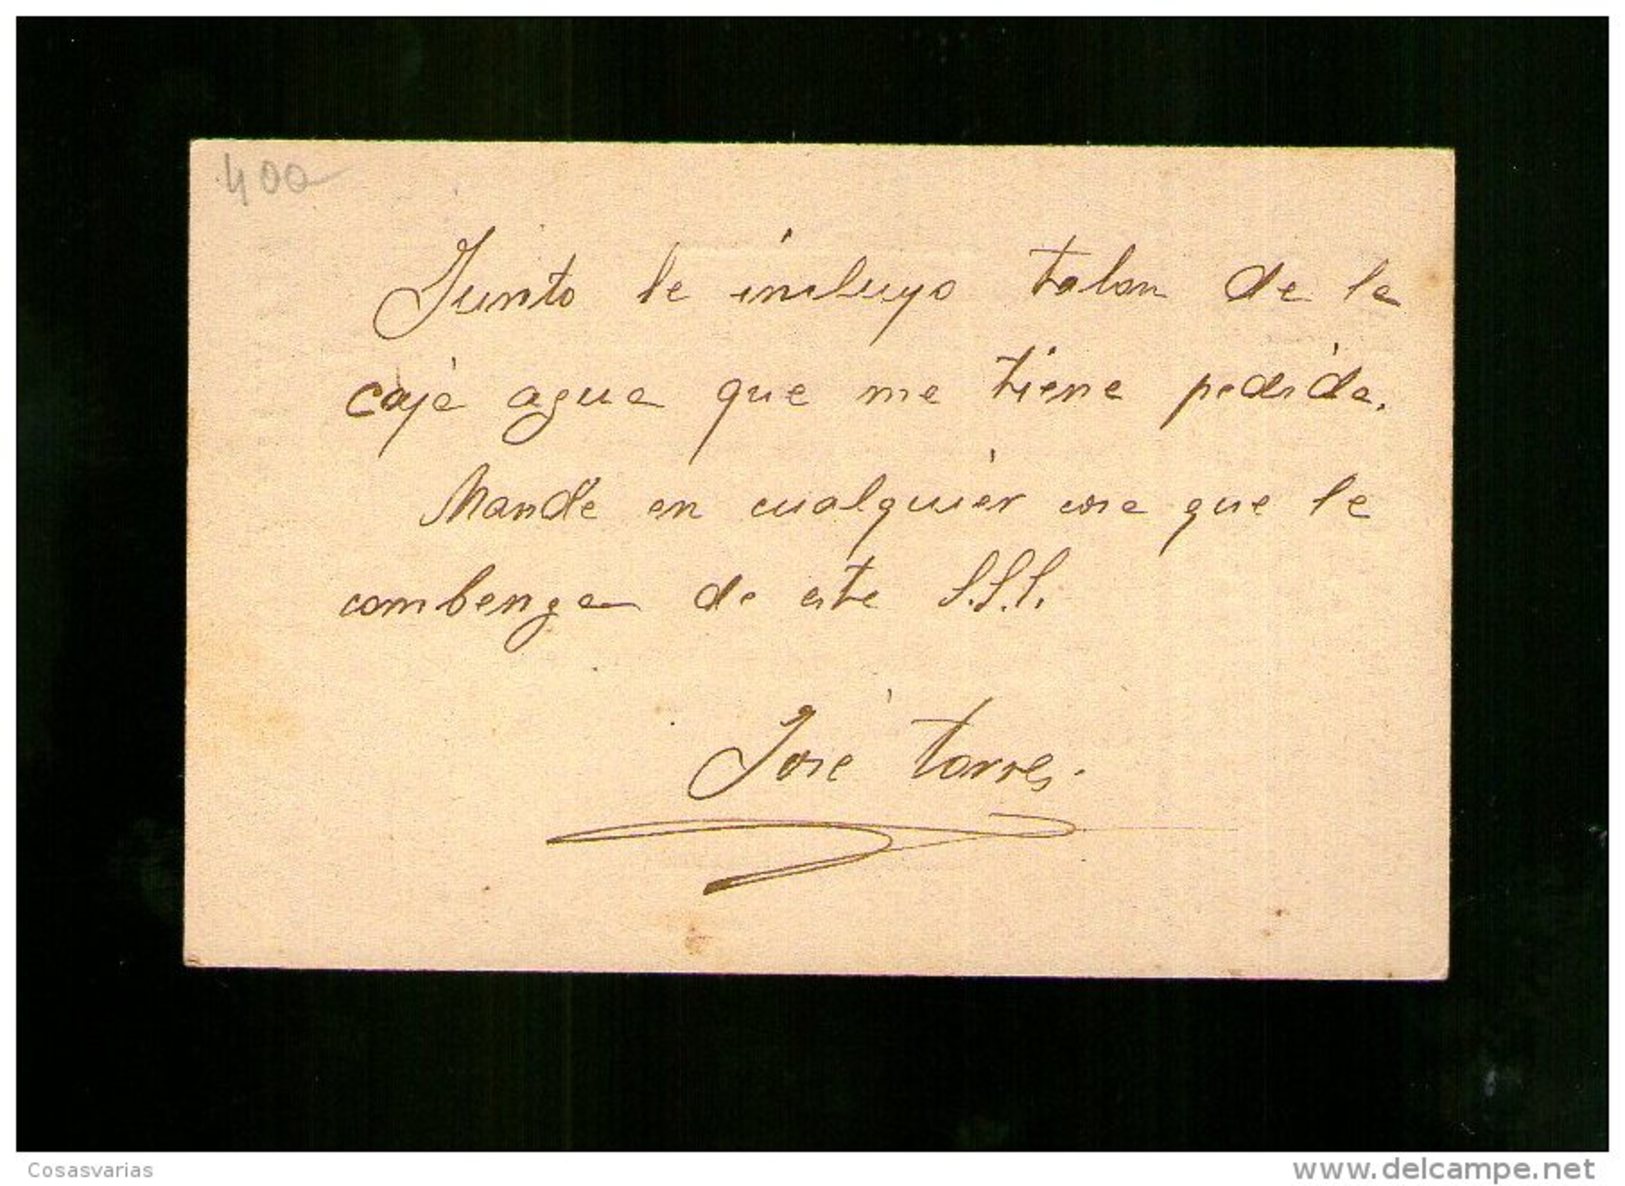 400
Junto le incluyo talon de la
caja agua que me tiene pedida.
Mande en cualquier cosa que le
combenga de este S.S.S.
José Torres.
Cosasvarias
www.delcampe.net